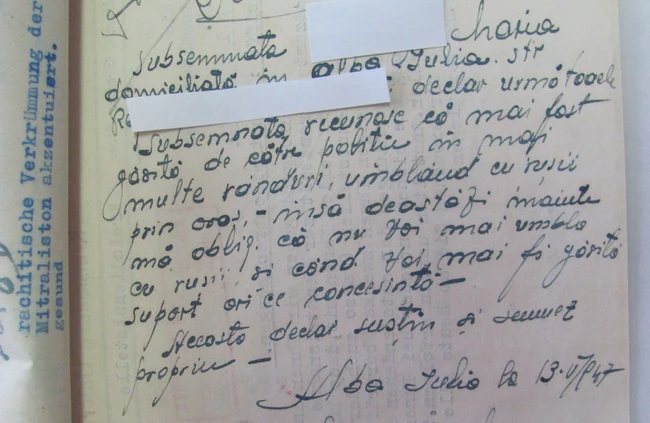 rachitische Verkrümmung der
Mitraliston akzentuiert.
gesund
Maria
Subsemnata
domiciliată în Alba Iulia. str
declar următoarele
Subsemnata recunosc că mai fost
găsită de către poliție în mai
multe rânduri, umblând cu rusii
prin oraș, - însă deastăzi înainte
mă oblig. că nu voi mai umbla
cu rusii și când voi mai fi găsită
suport ori ce concesintă -
Aceasta declar susțin și semnez
propriu -
Alba Iulia la 13.V/947